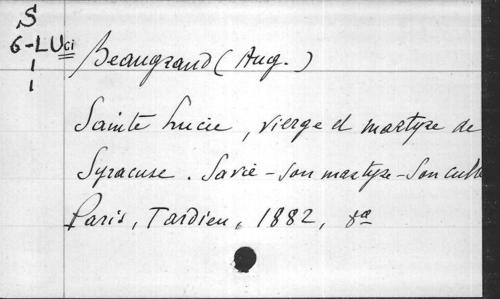 S
6-LUci
1
1
Beaugrand (Aug.)
Sainte Lucie, vierge et martyre de
Syracuse. Sa vie - son martyre - son culte
Paris, Tardieu, 1882, 8º